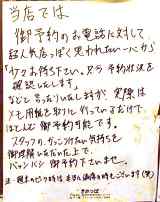 当店では
御予約のお電話に対して
超人気店っぽく思われたい一心から
「少々お待ち下さい。只今予約状況を
確認いたします」
などと言ったりしますが、実際は
メモ用紙を取りに行っているだけで、
ほとんど御予約可能です。
スタッフのカッコつけたい気持ちを
御理解いただいた上で、
バンバン御予約下さいませ。
注・週末のピーク時は本当に満席の時もございます(笑)